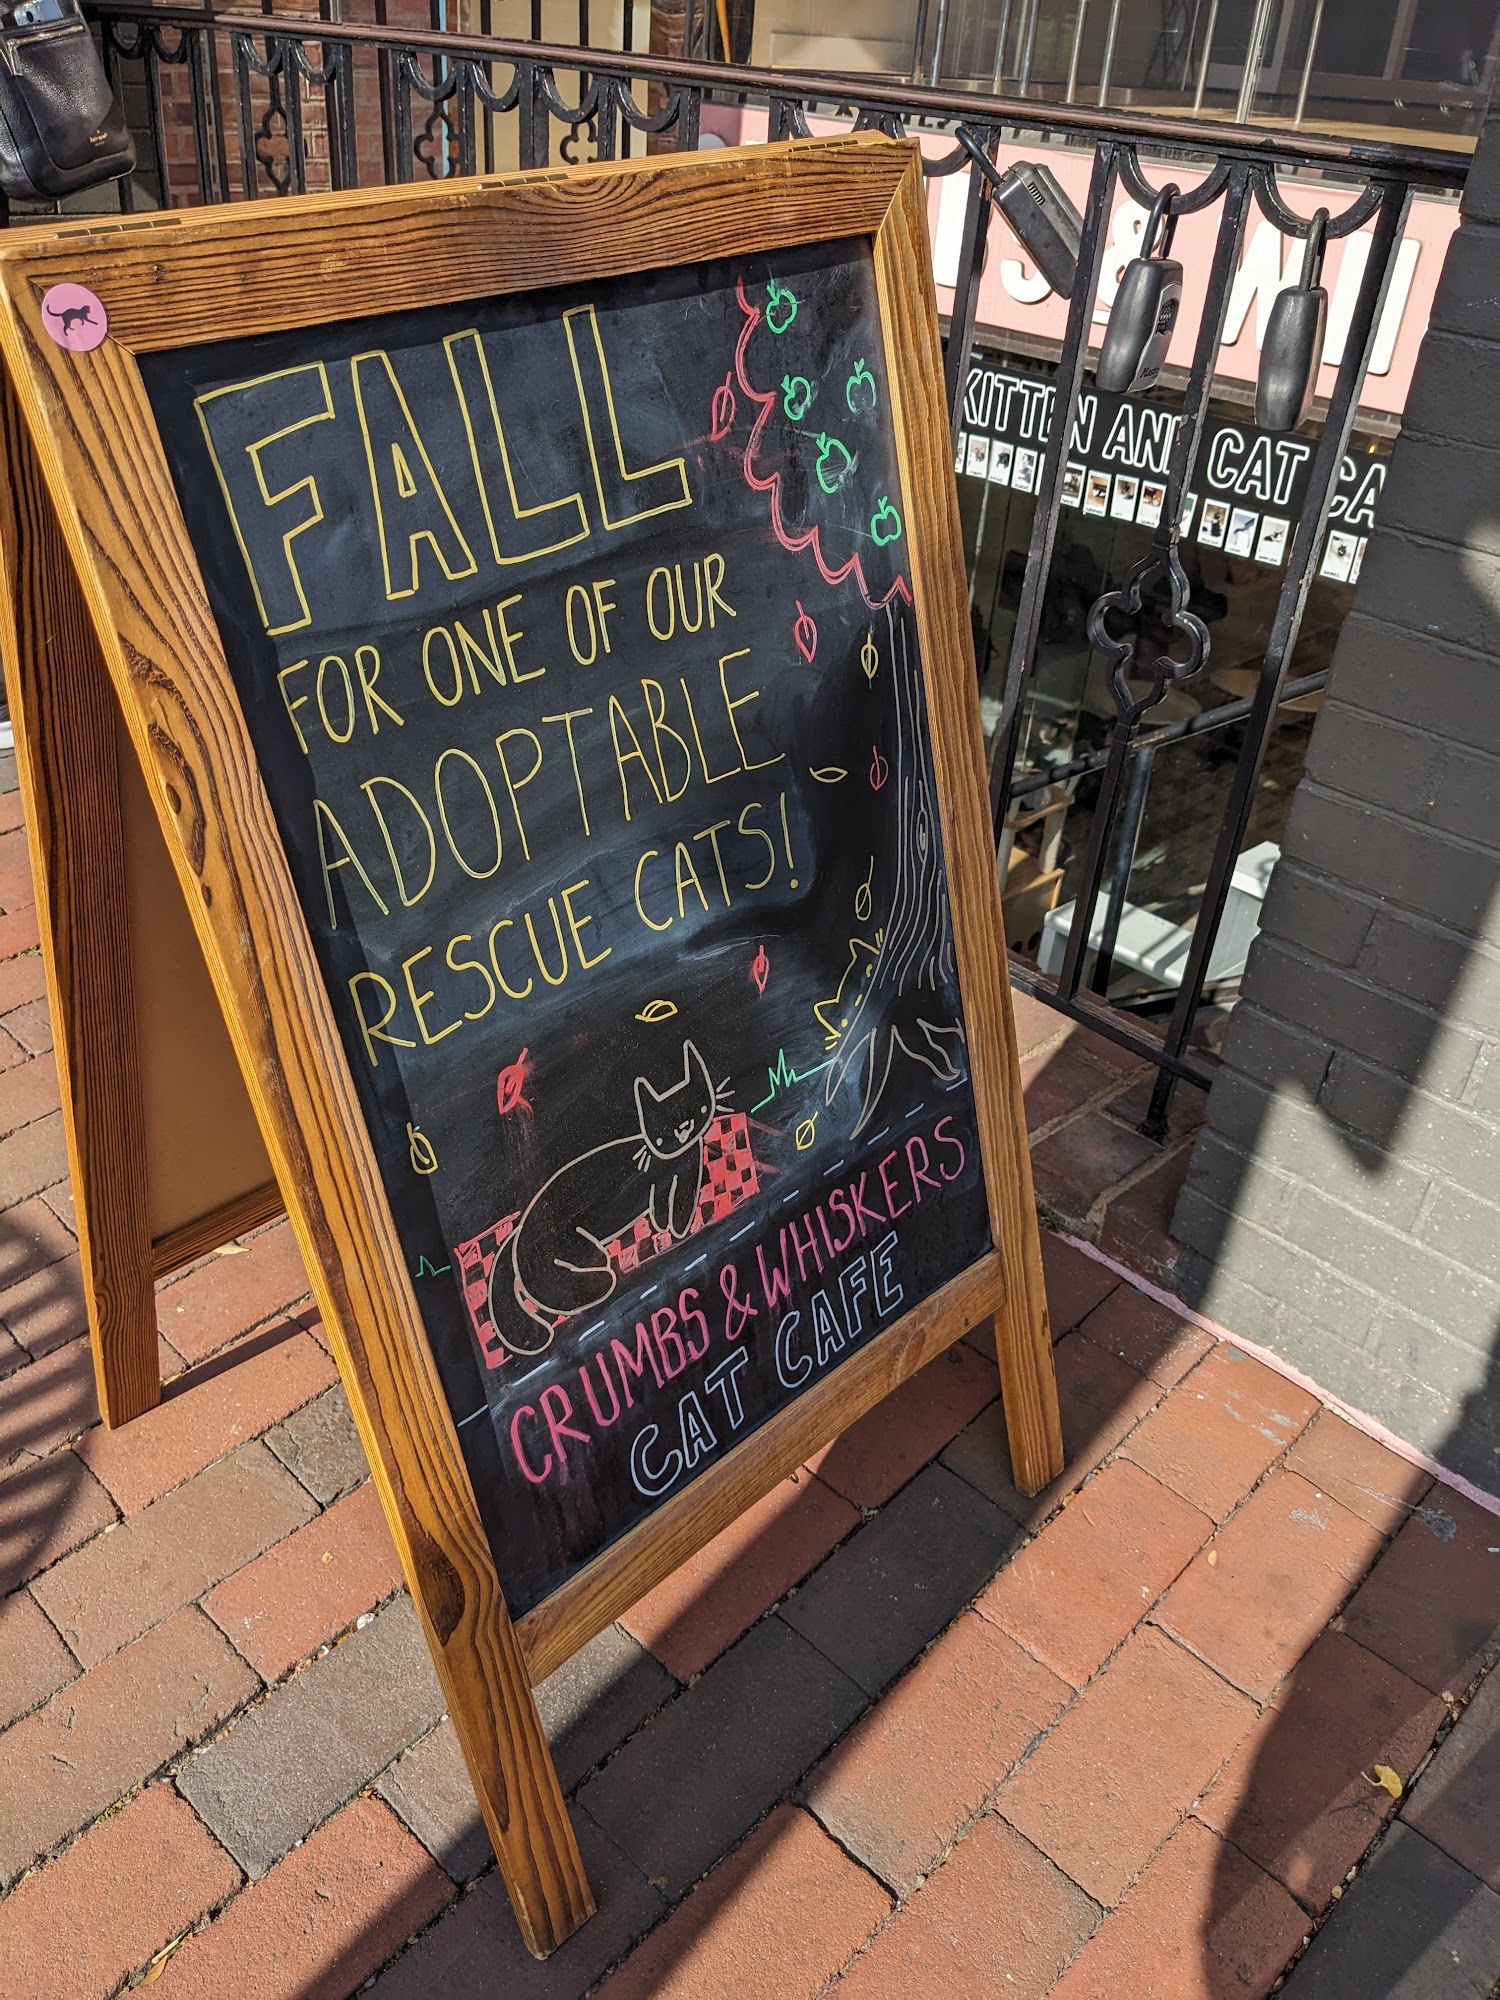 FALL
FOR ONE OF OUR
ADOPTABLE
RESCUE CATS!
CRUMBS & WHISKERS
CAT CAFE
S & WHI
KITTEN AND CAT CA